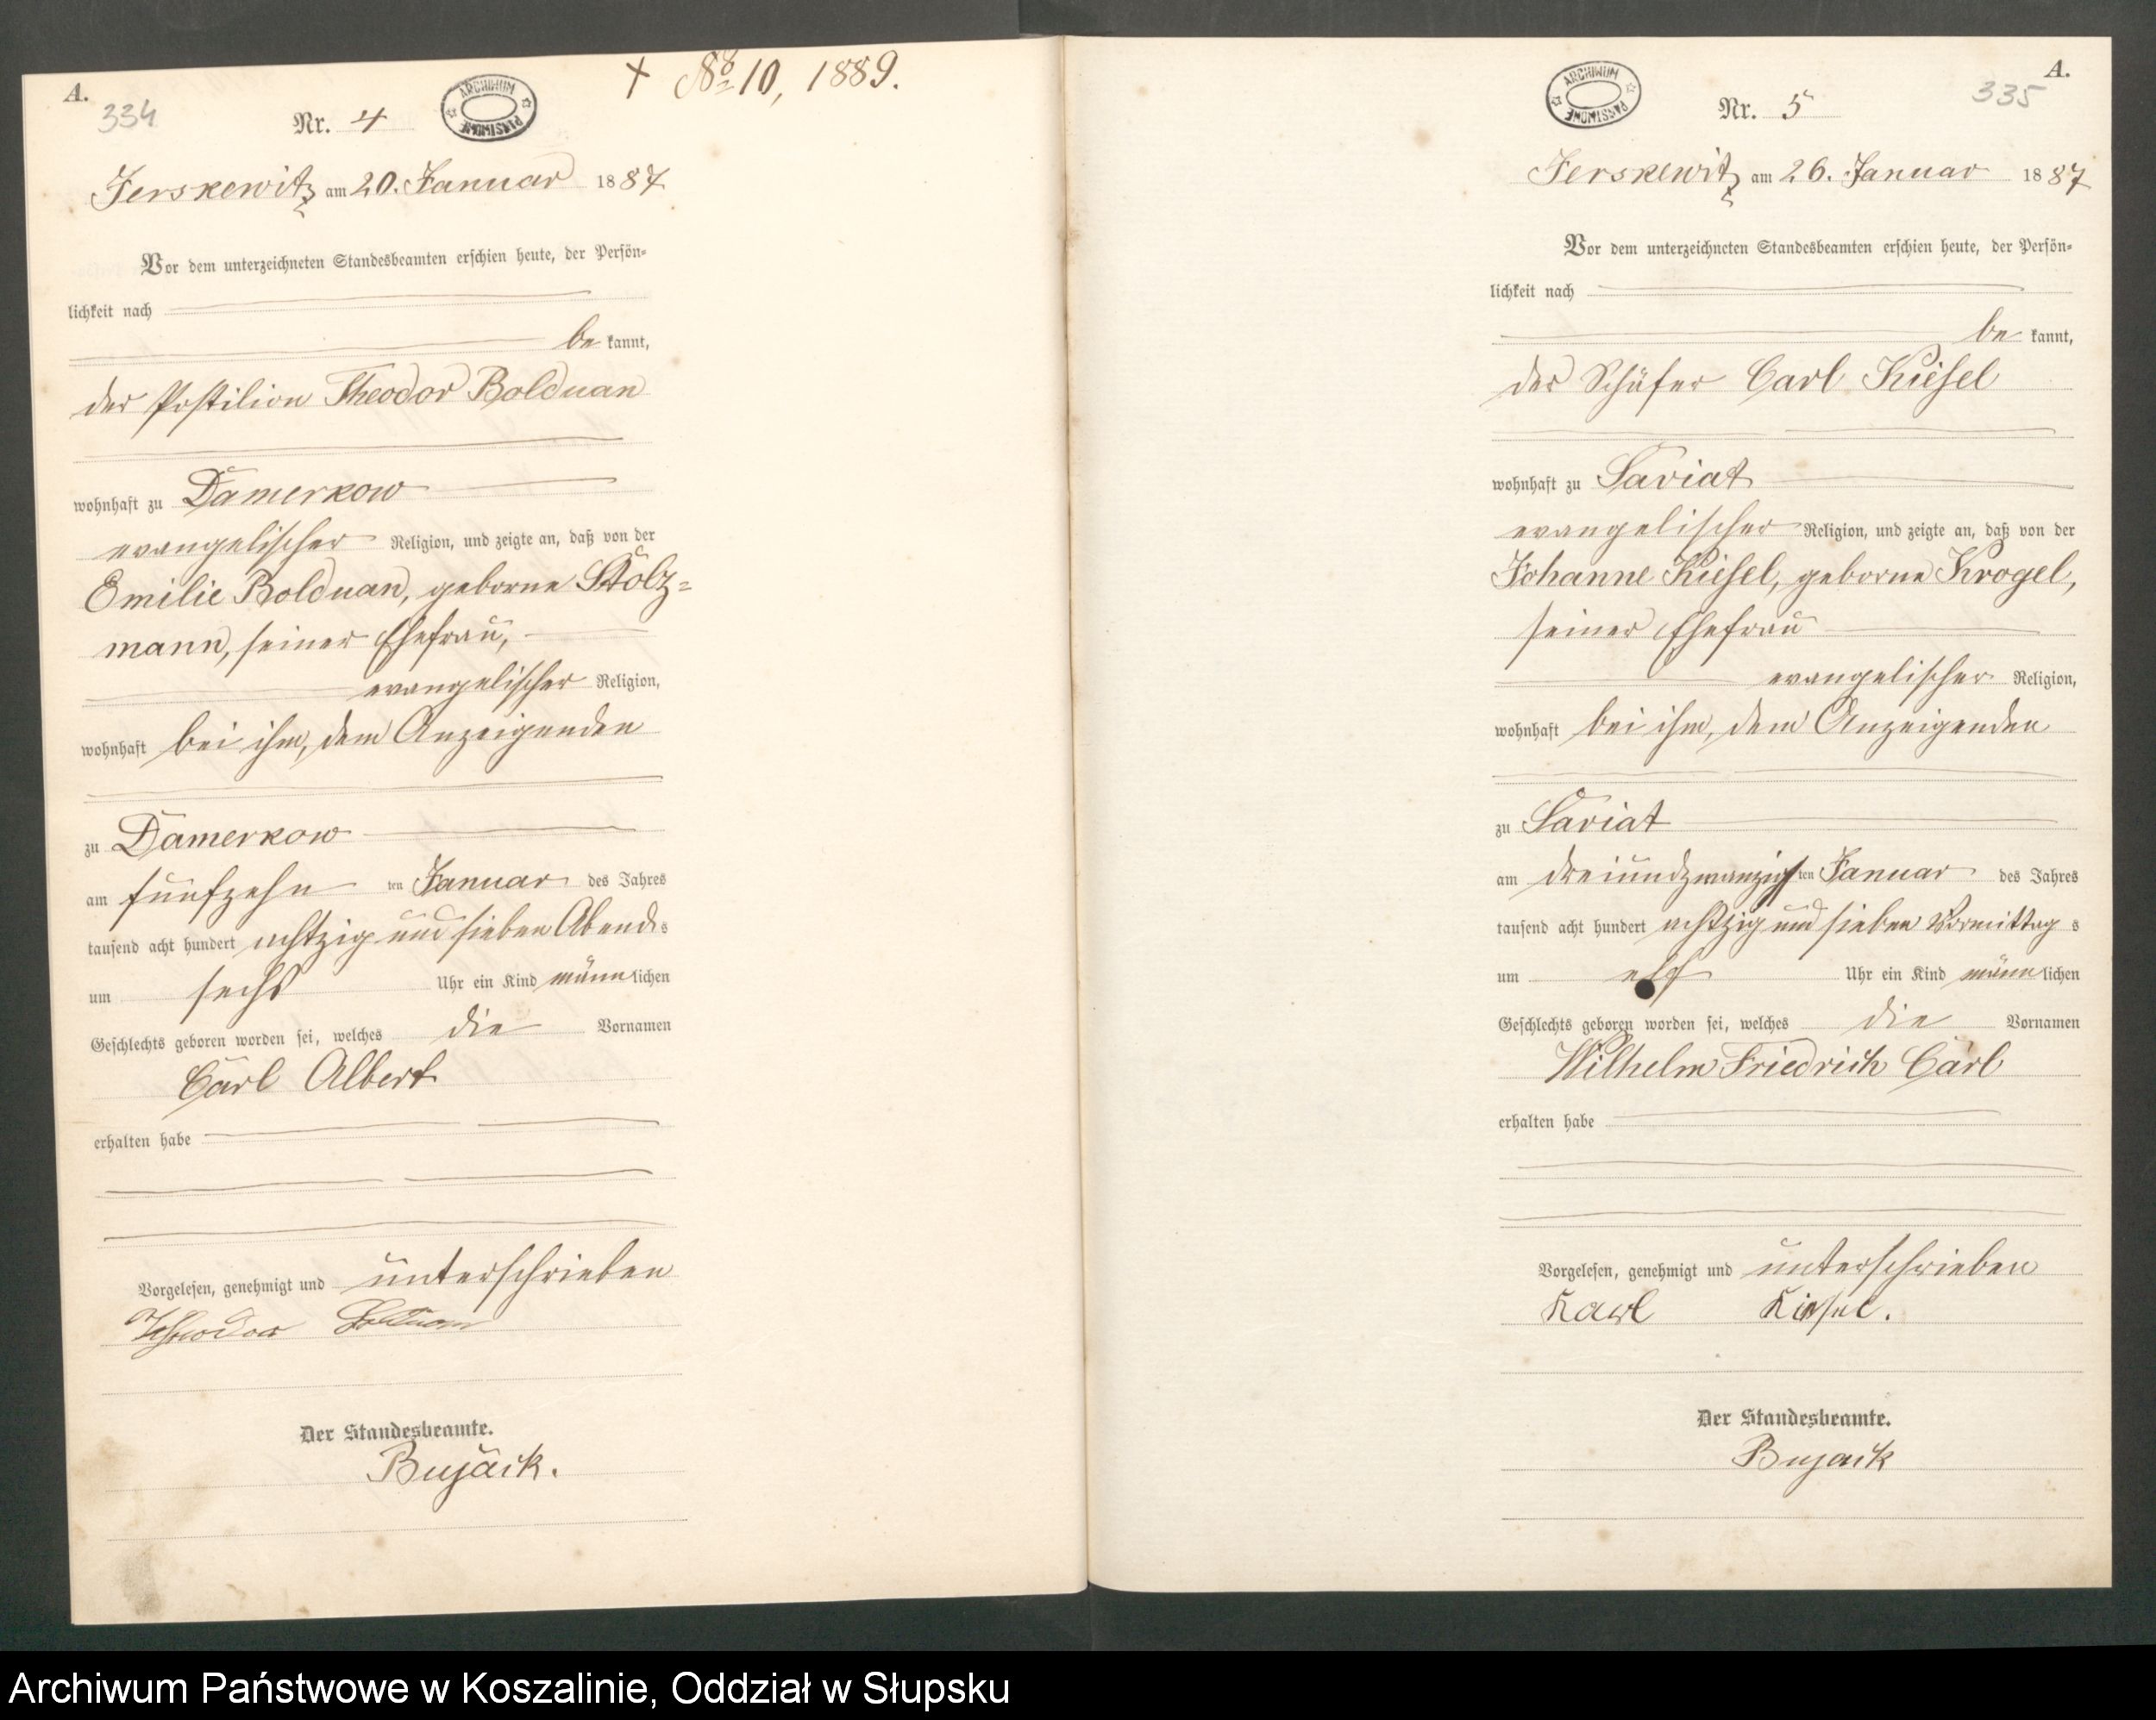 A.
334
Nr. 4
ARCHIWUM PAŃSTWOWE
+ No 10, 1889.
Jerskewitz am 20. Januar 1887
Vor dem unterzeichneten Standesbeamten erschien heute, der Persön-
lichkeit nach
be kannt,
der Postilion Theodor Bolduan
wohnhaft zu Damerkow
evangelischer Religion, und zeigte an, daß von der
Emilie Bolduan, geborne Stolz-
mann, seiner Ehefrau,
evangelischer Religion,
wohnhaft bei ihm, dem Anzeigenden
zu Damerkow
am fünfzehn ten Januar des Jahres
tausend acht hundert achtzig und sieben Abends
um sechs Uhr ein Kind männlichen
Geschlechts geboren worden sei, welches die Vornamen
Carl Albert
erhalten habe
Vorgelesen, genehmigt und unterschrieben
Theodor Bolduan
Der Standesbeamte.
Bujack.
A.
335
ARCHIWUM PAŃSTWOWE
Nr. 5
Jerskewitz am 26. Januar 1887
Vor dem unterzeichneten Standesbeamten erschien heute, der Persön-
lichkeit nach
be kannt,
der Schäfer Carl Kiesel
wohnhaft zu Saviat
evangelischer Religion, und zeigte an, daß von der
Johanne Kiesel, geborne Krogel,
seiner Ehefrau
evangelischer Religion,
wohnhaft bei ihm, dem Anzeigenden
zu Saviat
am dreiundzwanzigsten Januar des Jahres
tausend acht hundert achtzig und sieben Vormittags
um elf Uhr ein Kind männlichen
Geschlechts geboren worden sei, welches die Vornamen
Wilhelm Friedrich Carl
erhalten habe
Vorgelesen, genehmigt und unterschrieben
Karl Kiesel.
Der Standesbeamte.
Bujack
Archiwum Państwowe w Koszalinie, Oddział w Słupsku